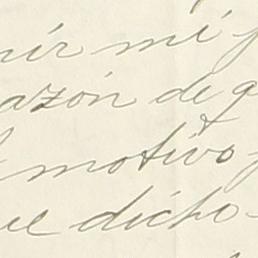 nir mi
azón de q
motivo
ue dicho